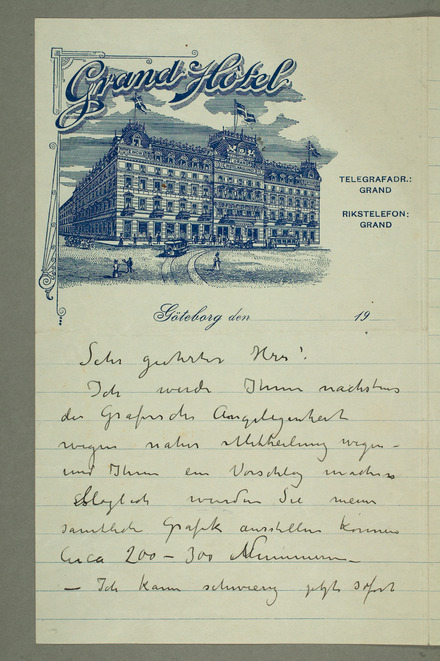 Grand Hôtel
TELEGRAFADR.:
GRAND
RIKSTELEFON:
GRAND
Göteborg den 19
Sehr geehrter Herr!
Ich werde Ihnen nachstens
der Grafische Angelegenheit
wegen naher Mittheilung
und Ihnen ein Vorschlag machen
wurden Sie meine
samtliche Grafik ausstellen konnen
Circa 200 – 300 Nummern –
– Ich kann schwierig jetzt sofort